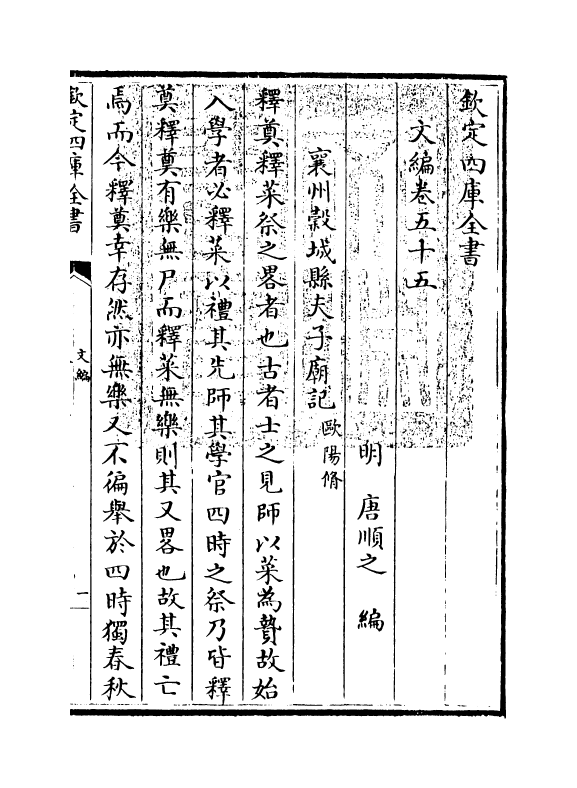 欽定四庫全書
文編卷五十五
明　唐順之　編
襄州穀城縣夫子廟記歐陽脩
釋奠釋菜祭之畧者也古者士之見師以菜為贄故始
入學者必釋菜以禮其先師其學官四時之祭乃皆釋
奠釋奠有樂無尸而釋菜無樂則其又畧也故其禮亡
焉而今釋奠幸存然亦無樂又不徧舉於四時獨春秋
欽定四庫全書
文編
一